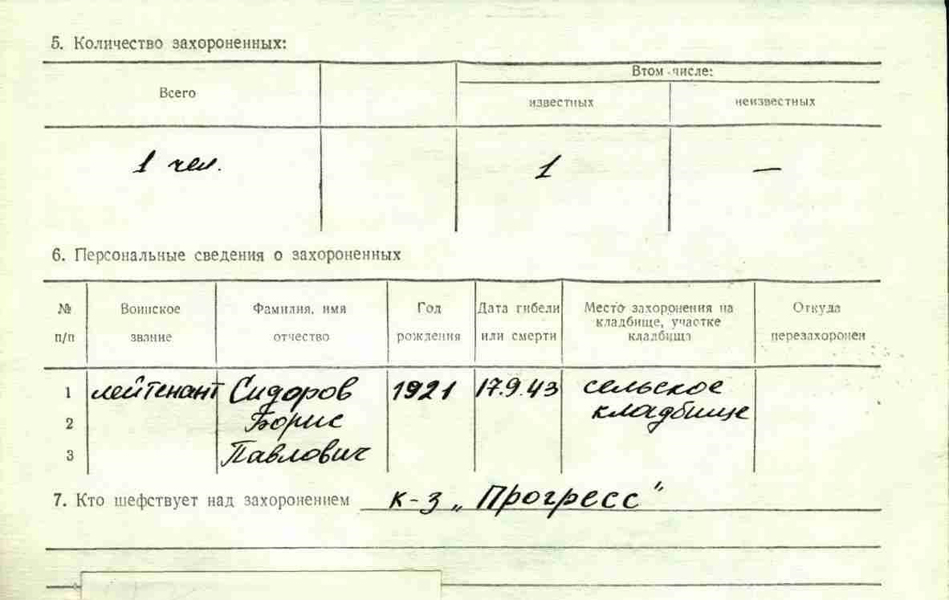 5. Количество захороненных:
Всего
Втом числе:
известных
неизвестных
1 чел.
1
—
6. Персональные сведения о захороненных
№ п/п
Воинское звание
Фамилия, имя отчество
Год рождения
Дата гибели или смерти
Место захоронения на кладбище, участке кладбища
Откуда перезахоронен
1 лейтенант Сидоров 1921 17.9.43 сельское
2 Борис кладбище
3 Павлович
7. Кто шефствует над захоронением к-з „Прогресс"